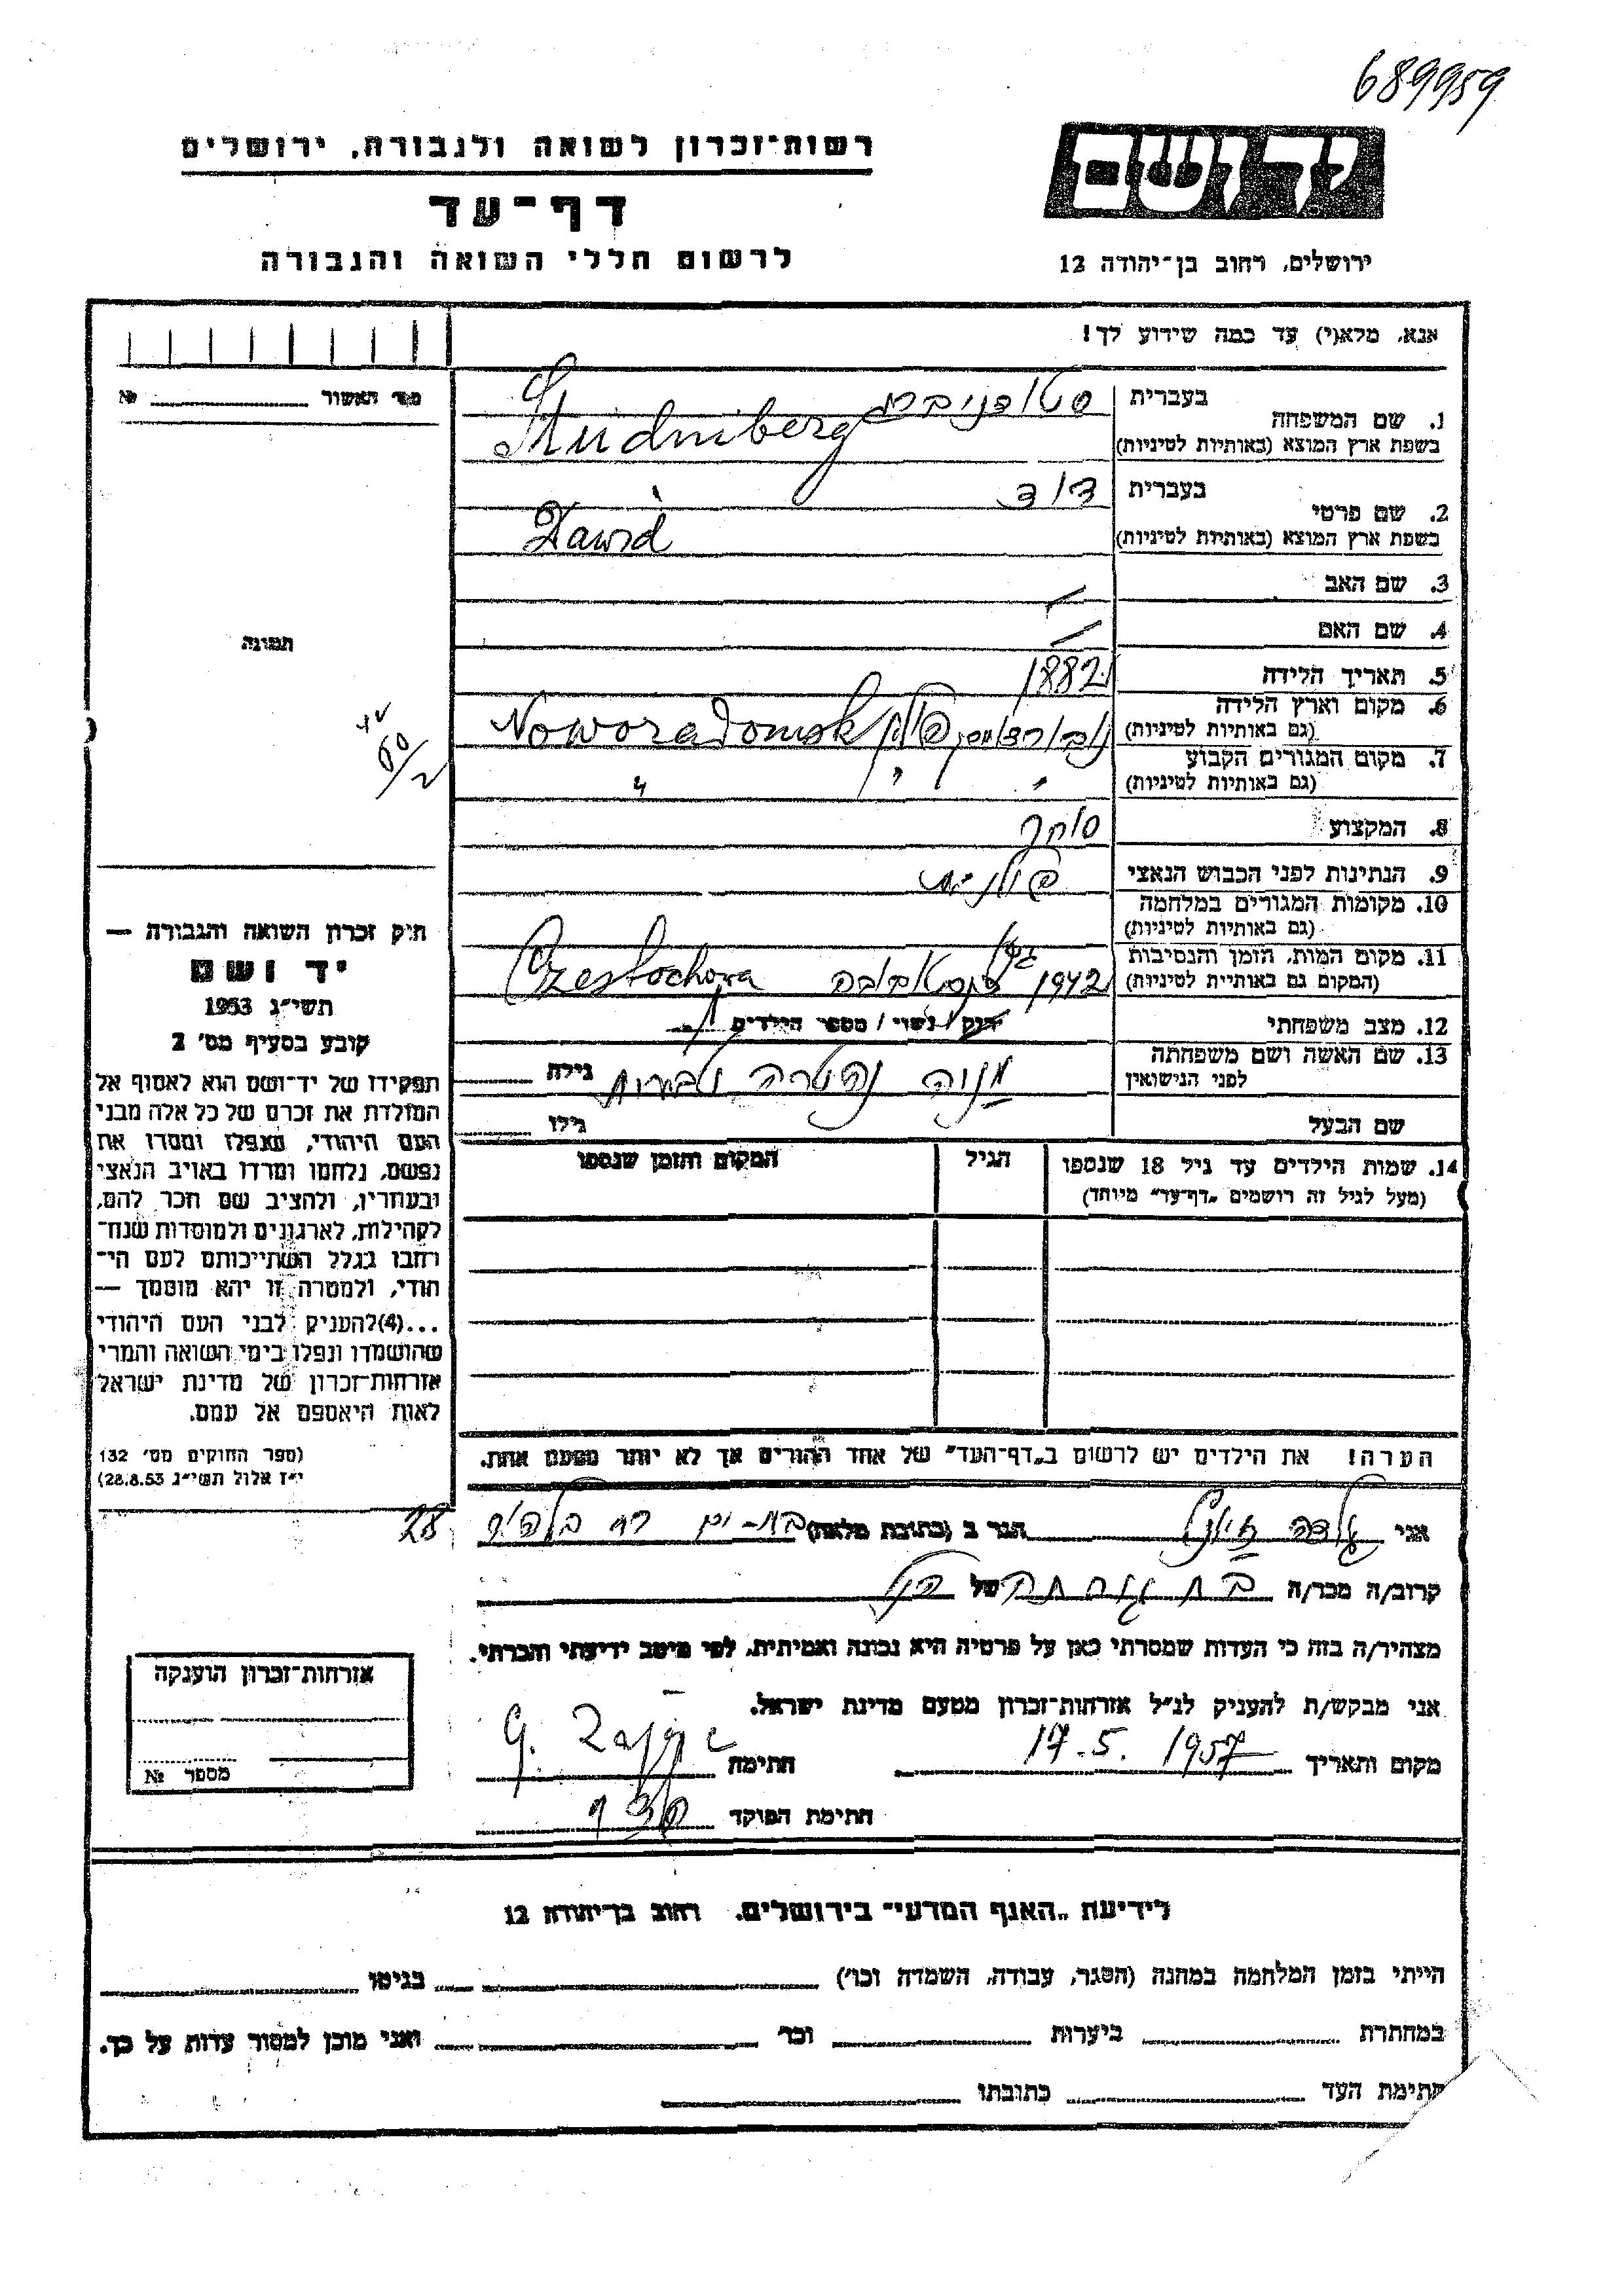 689959
יד ושם
רשות־זכרון לשואה ולגבורה, ירושלים
דף־עד
לרשום חללי השואה והגבורה
ירושלים, רחוב בן־יהודה 12
אנא, מלא(י) עד כמה שידוע לך!
מס' האשור № 
1. שם המשפחה
בעברית
בשפת ארץ המוצא (באותיות לטיניות)
Studniberg
2. שם פרטי
בעברית דוד
בשפת ארץ המוצא (באותיות לטיניות) Dawid
3. שם האב —
4. שם האם —
תמונה
5. תאריך הלידה 1882
6. מקום וארץ הלידה
(גם באותיות לטיניות) פולין Noworadomsk
7. מקום המגורים הקבוע
(גם באותיות לטיניות) " " "
8. המקצוע סוחר
9. הנתינות לפני הכבוש הנאצי פולנית
10. מקומות המגורים במלחמה
(גם באותיות לטיניות)
11. מקום המות, הזמן והנסיבות
(המקום גם באותיית לטיניות) 1942 Czestochowa
12. מצב משפחתי רווק / נשוי / מספר הילדים
13. שם האשה ושם משפחתה
לפני הנישואין
גילה
שם הבעל גילו
14. שמות הילדים עד גיל 18 שנספו
(מעל לגיל זה רושמים „דף־עד" מיוחד)
הגיל
המקום והזמן שנספו
הערה! את הילדים יש לרשום ב„דף־העד" של אחד ההורים אך לא יותר מפעם אחת.
חוק זכרון השואה והגבורה —
יד ושם
תשי"ג 1953
קובע בסעיף מס' 2
תפקידו של יד־ושם הוא לאסוף אל
המולדת את זכרם של כל אלה מבני
העם היהודי, שנפלו ומסרו את
נפשם, נלחמו ומרדו באויב הנאצי
ובעוזריו, ולהציב שם וזכר להם,
לקהילות, לארגונים ולמוסדות שנח־
רבו בגלל השתייכותם לעם הי־
הודי, ולמטרה זו יהא מוסמך —
...(4)להעניק לבני העם היהודי
שהושמדו ונפלו בימי השואה והמרי
אזרחות־זכרון של מדינת ישראל
לאות היאספם אל עמם.
(ספר החוקים מס' 132
י"ז אלול תשי"ג 28.8.53)
אני גולדה הגר ב (כתובת מלאה) בת-ים רח 28
קרוב/ה מכר/ה של הנ"ל
מצהיר/ה בזה כי העדות שמסרתי כאן על פרטיה היא נכונה ואמיתית, לפי מיטב ידיעתי והכרתי.
אני מבקש/ת להעניק לנ"ל אזרחות־זכרון מטעם מדינת ישראל.
מקום ותאריך 17.5.1957 חתימה
חתימת הפוקד
אזרחות־זכרון הוענקה
מספר №
לידיעת „האגף המדעי" בירושלים. רחוב בן־יהודה 12
הייתי בזמן המלחמה במחנה (הסגר, עבודה, השמדה וכו') בגיטו
במחתרת ביערות וכו' ואני מוכן למסור עדות על כך.
חתימת העד כתובתו